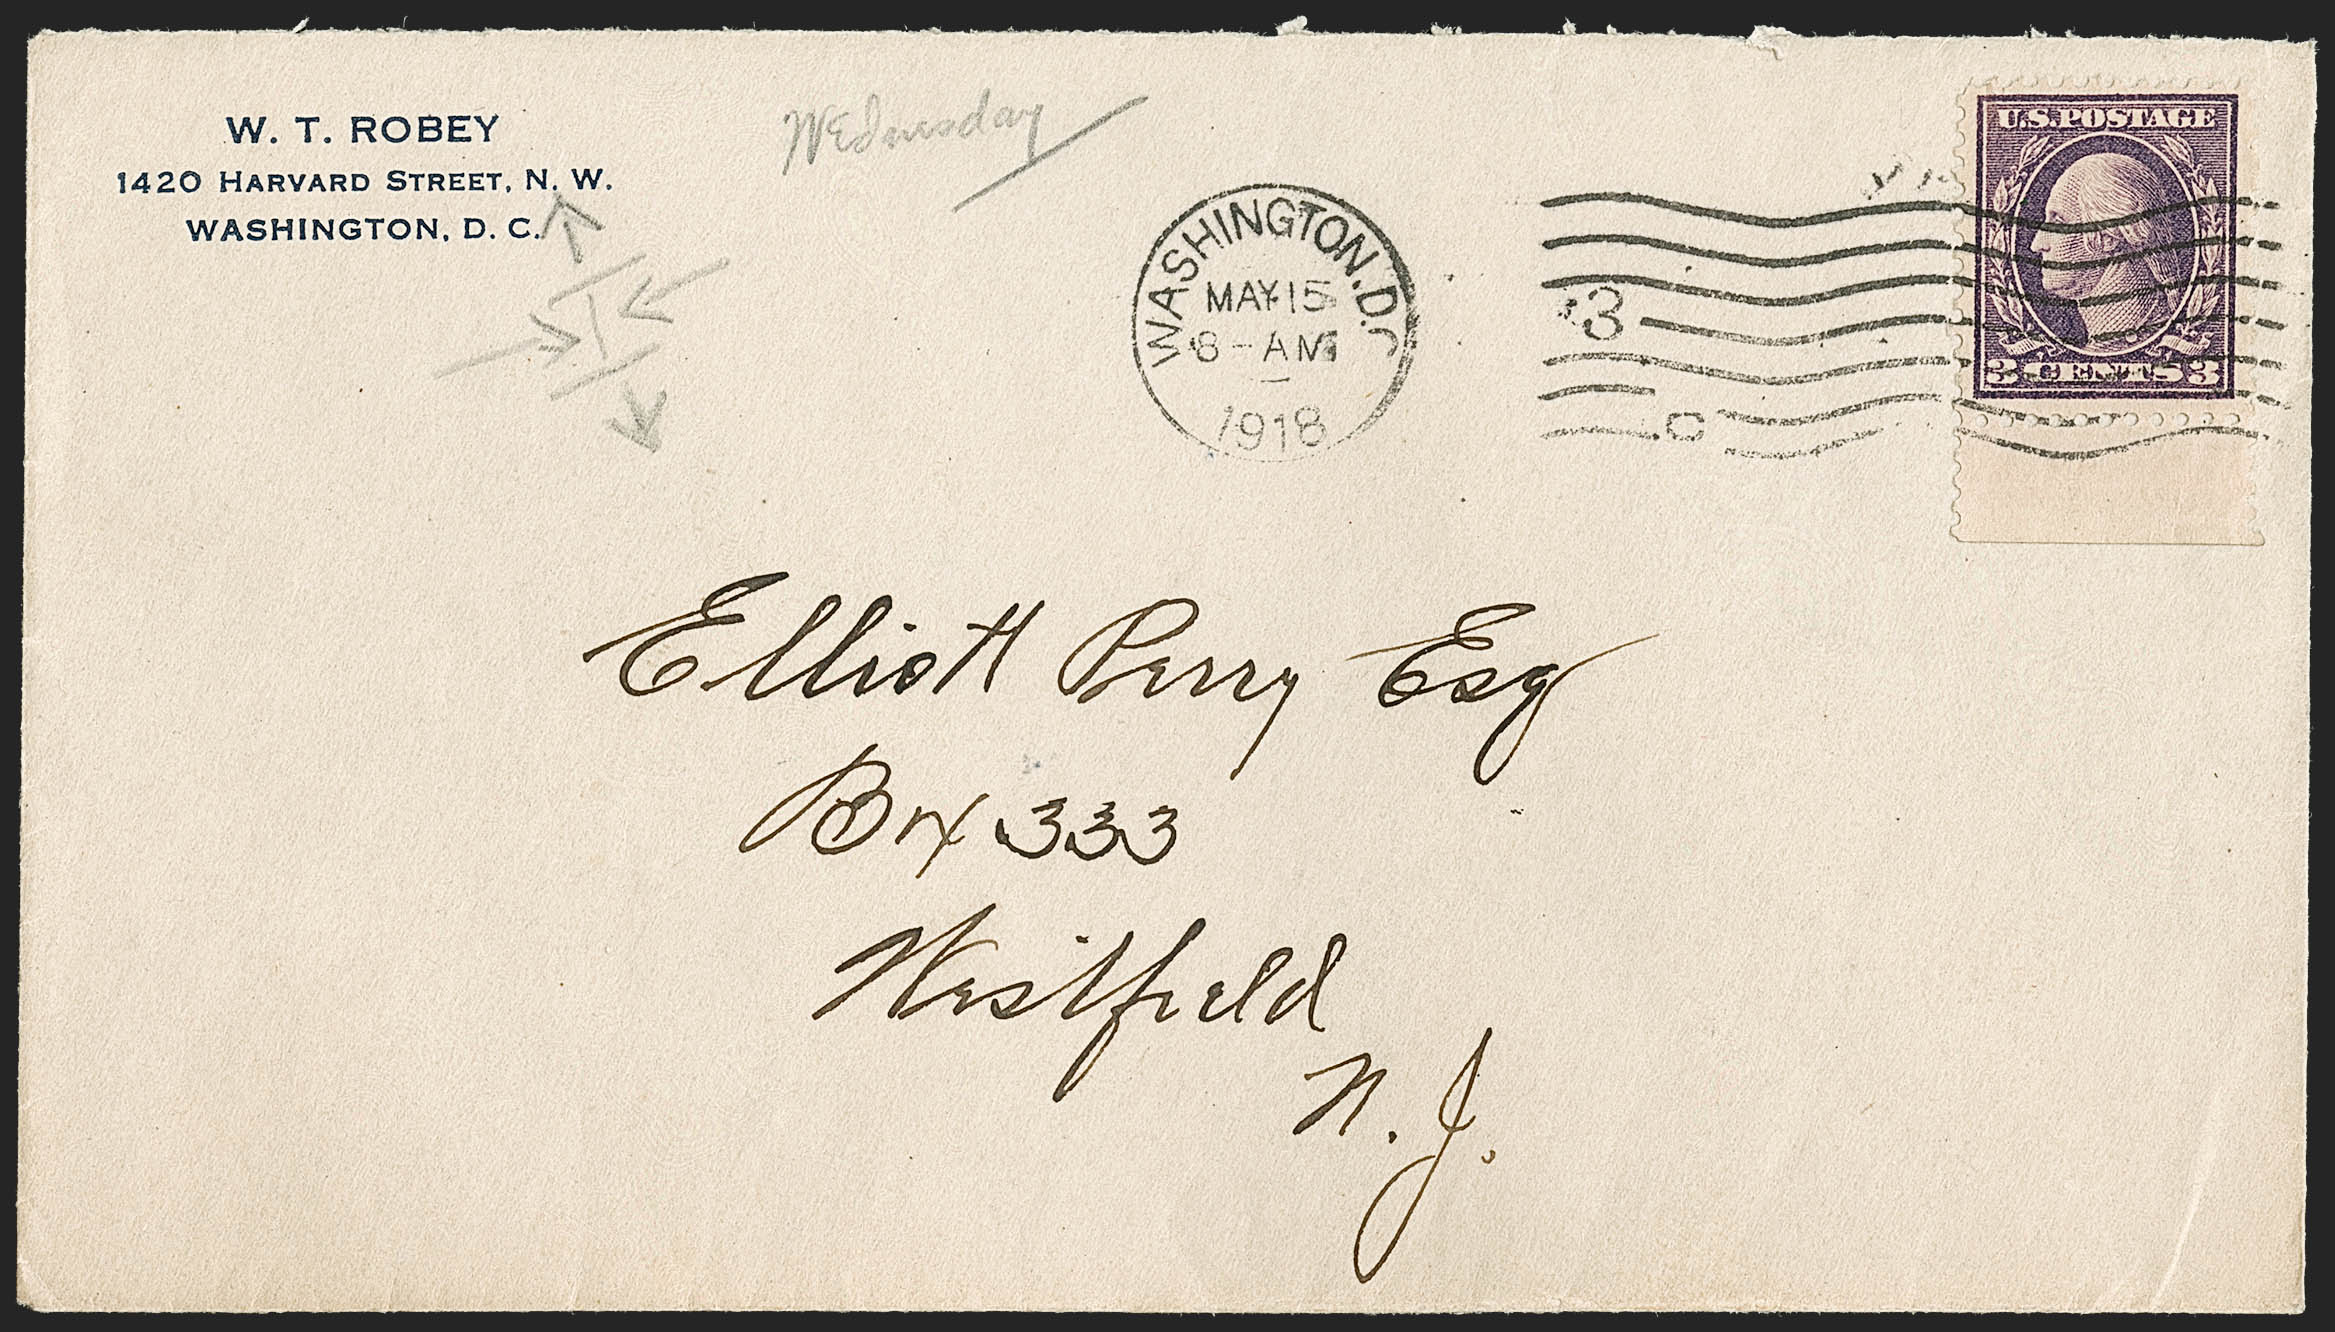 W. T. ROBEY
1420 HARVARD STREET, N. W.
WASHINGTON, D. C.
Wednesday
WASHINGTON, D.C.
MAY 15
8 - AM
1918
3
C
U.S. POSTAGE
3 CENTS 3
Elliott Perry Esq
Box 333
Westfield
N. J.